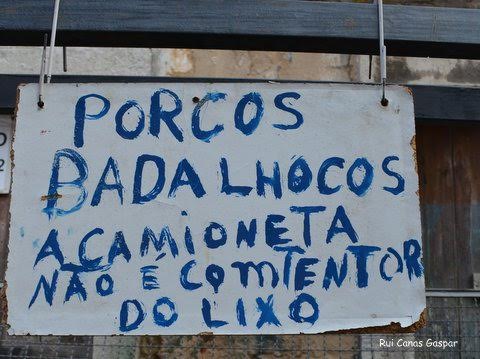 PORCOS
BADALHÓCOS
A CAMIONETA
NÃO É COMTENTOR
DO LIXO
Rui Canas Gaspar